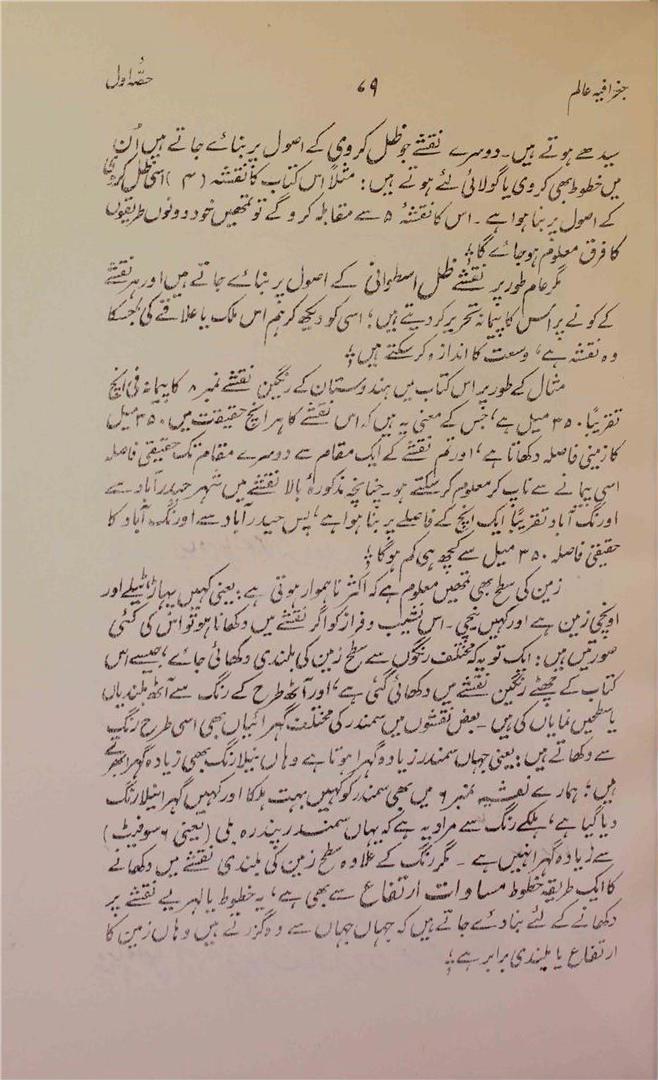 جغرافیہ عالم ۶۹ حصّۂ اول
سیدھے ہوتے ہیں۔ دوسرے نقشے جو ظل کروی کے اصول پر بنائے جاتے ہیں اُن
میں خطوط بھی کروی یا گولائی لئے ہوتے ہیں: مثلاً اس کتاب کا نقشہ (۴) اسی ظل کروی
کے اصول پر بنا ہوا ہے۔ اس کا نقشۂ ۵ سے مقابلہ کرو گے تو تمھیں خود دونوں طریقوں
کا فرق معلوم ہو جائے گا؛
مگر عام طور پر نقشے ظل اسطوانی کے اصول پر بنائے جاتے ہیں اور ہر نقشے
کے کونے پر اُس کا پیمانہ تحریر کر دیتے ہیں؛ اسی کو دیکھ کر ہم اس ملک یا علاقے کی جس کا
وہ نقشہ ہے، وسعت کا اندازہ کر سکتے ہیں؛
مثال کے طور پر اس کتاب میں ہندوستان کے رنگین نقشے نمبر ۸ کا پیمانہ فی انچ
تقریباً ۳۵۰ میل ہے، جس کے معنی یہ ہیں کہ اس نقشے کا ہر انچ حقیقت میں ۳۵۰ میل
کا زمینی فاصلہ دکھاتا ہے، اور تم نقشے کے ایک مقام سے دوسرے مقام تک حقیقی فاصلہ
اسی پیمانے سے ناپ کر معلوم کر سکتے ہو۔ چنانچہ مذکورۂ بالا نقشے میں شہر حیدرآباد سے
اورنگ آباد تقریباً ایک انچ کے فاصلے پر بنا ہوا ہے، پس حیدرآباد سے اورنگ آباد کا
حقیقی فاصلہ ۳۵۰ میل سے کچھ ہی کم ہوگا؛
زمین کی سطح بھی تمھیں معلوم ہے کہ اکثر ناہموار ہوتی ہے: یعنی کہیں پہاڑ، ٹیلے اور
اونچی زمین ہے اور کہیں نیچی۔ اس نشیب و فراز کو اگر نقشے میں دکھانا ہو تو اس کی کئی
صورتیں ہیں: ایک تو یہ کہ مختلف رنگوں سے سطح زمین کی بلندی دکھائی جائے، جیسے اس
کتاب کے چھٹے رنگین نقشے میں دکھائی گئی ہے، اور آٹھ طرح کے رنگ سے آٹھ بلندیاں
یا سطحیں نمایاں کی ہیں۔ بعض نقشوں میں سمندر کی مختلف گہرائیاں بھی اسی طرح رنگ
سے دکھاتے ہیں: یعنی جہاں سمندر زیادہ گہرا ہوتا ہے وہاں نیلا رنگ بھی زیادہ گہرا بھرتے
ہیں؛ ہمارے نقشہ نمبر ۶ میں بھی سمندر کو کہیں بہت ہلکا اور کہیں گہرا نیلا رنگ
دیا گیا ہے، ہلکے رنگ سے مراد یہ ہے کہ یہاں سمندر پندرہ بلی (یعنی ۶ سو فیٹ)
سے زیادہ گہرا نہیں ہے۔ مگر رنگ کے علاوہ سطح زمین کی بلندی نقشے میں دکھانے
کا ایک طریقہ خطوط مساوات ارتفاع سے بھی ہے، یہ خطوط یا لہریے نقشے پر
دکھانے کے لئے بنا دئے جاتے ہیں کہ جہاں جہاں سے وہ گزرتے ہیں وہاں زمین کا
ارتفاع یا بلندی برابر ہے؛